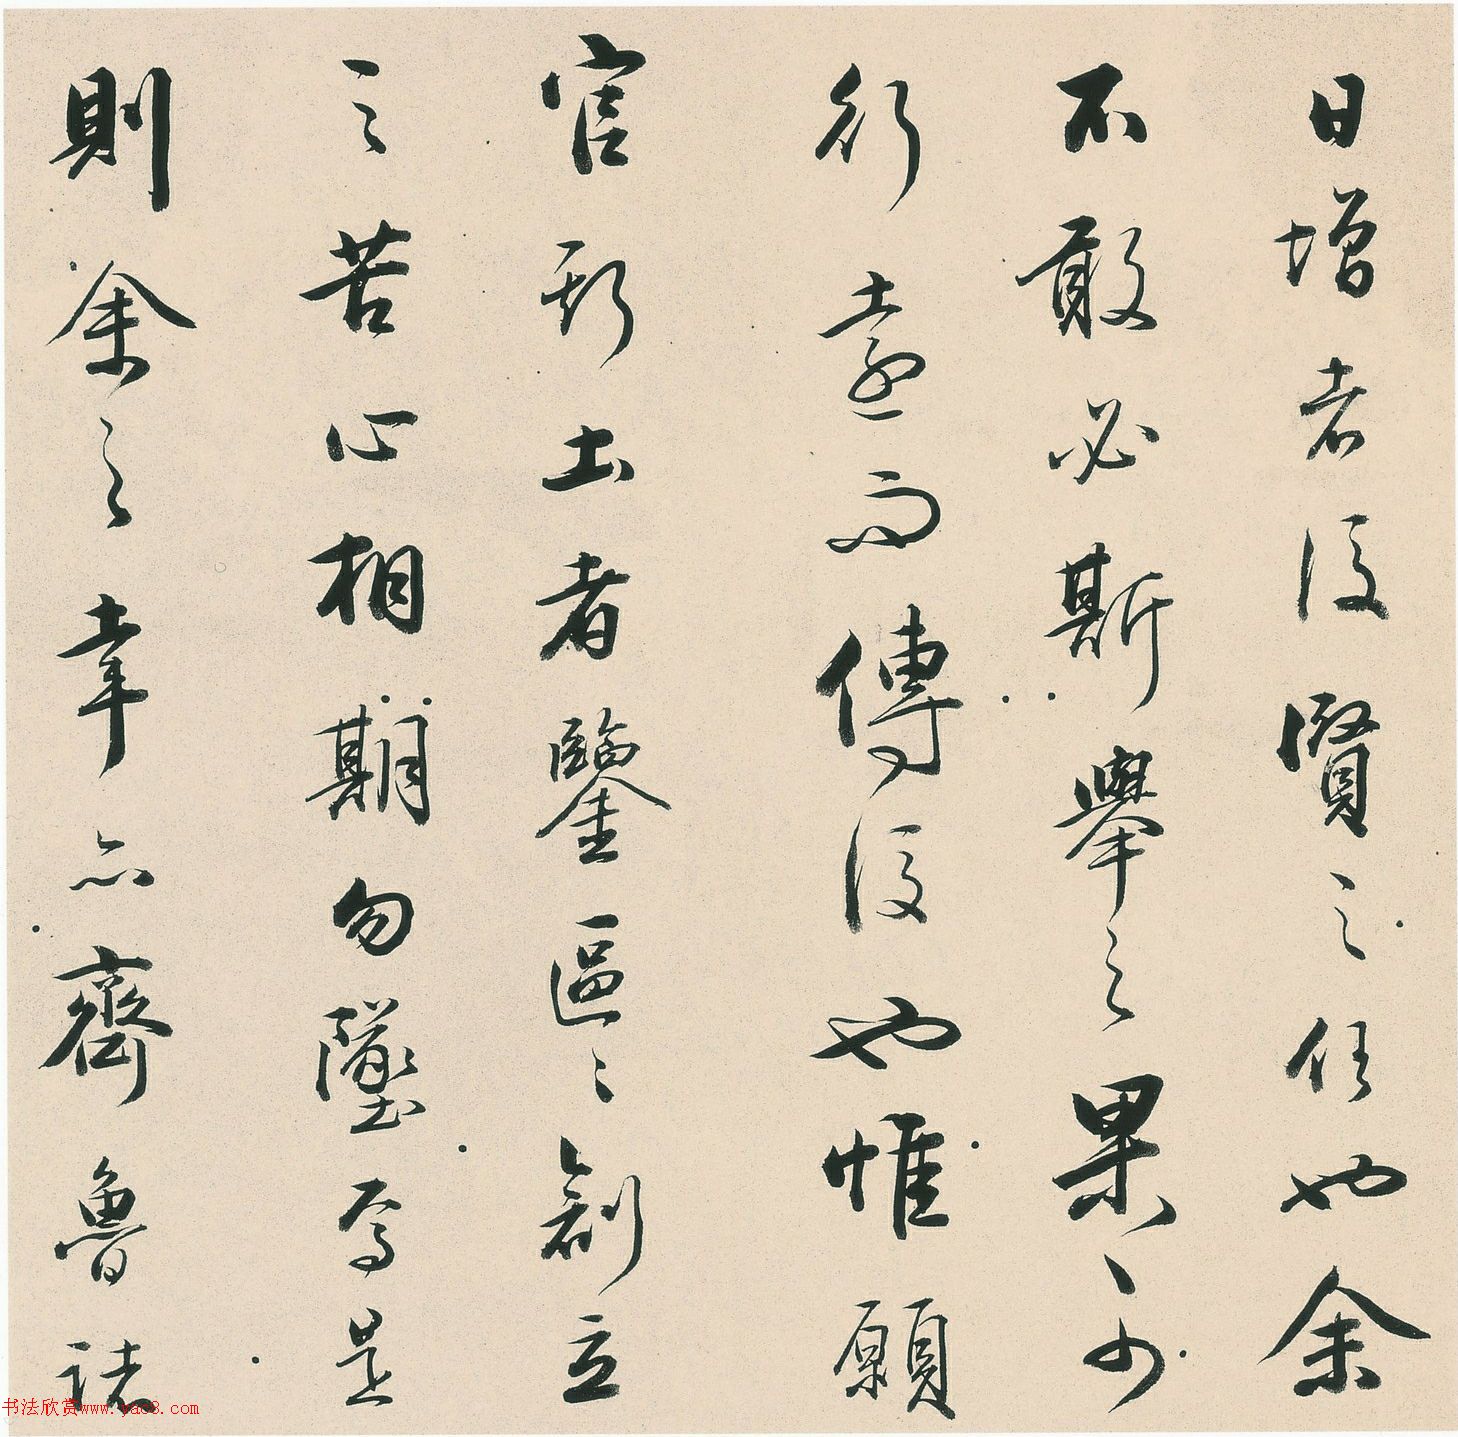 日增者後賢之任也余
不敢必斯舉之果可
行遠而傳後也惟願
官斯土者鑒區區創立
之苦心相期勿墜焉是
則余之幸亦齊魯諸
书法欣赏www.yac8.com